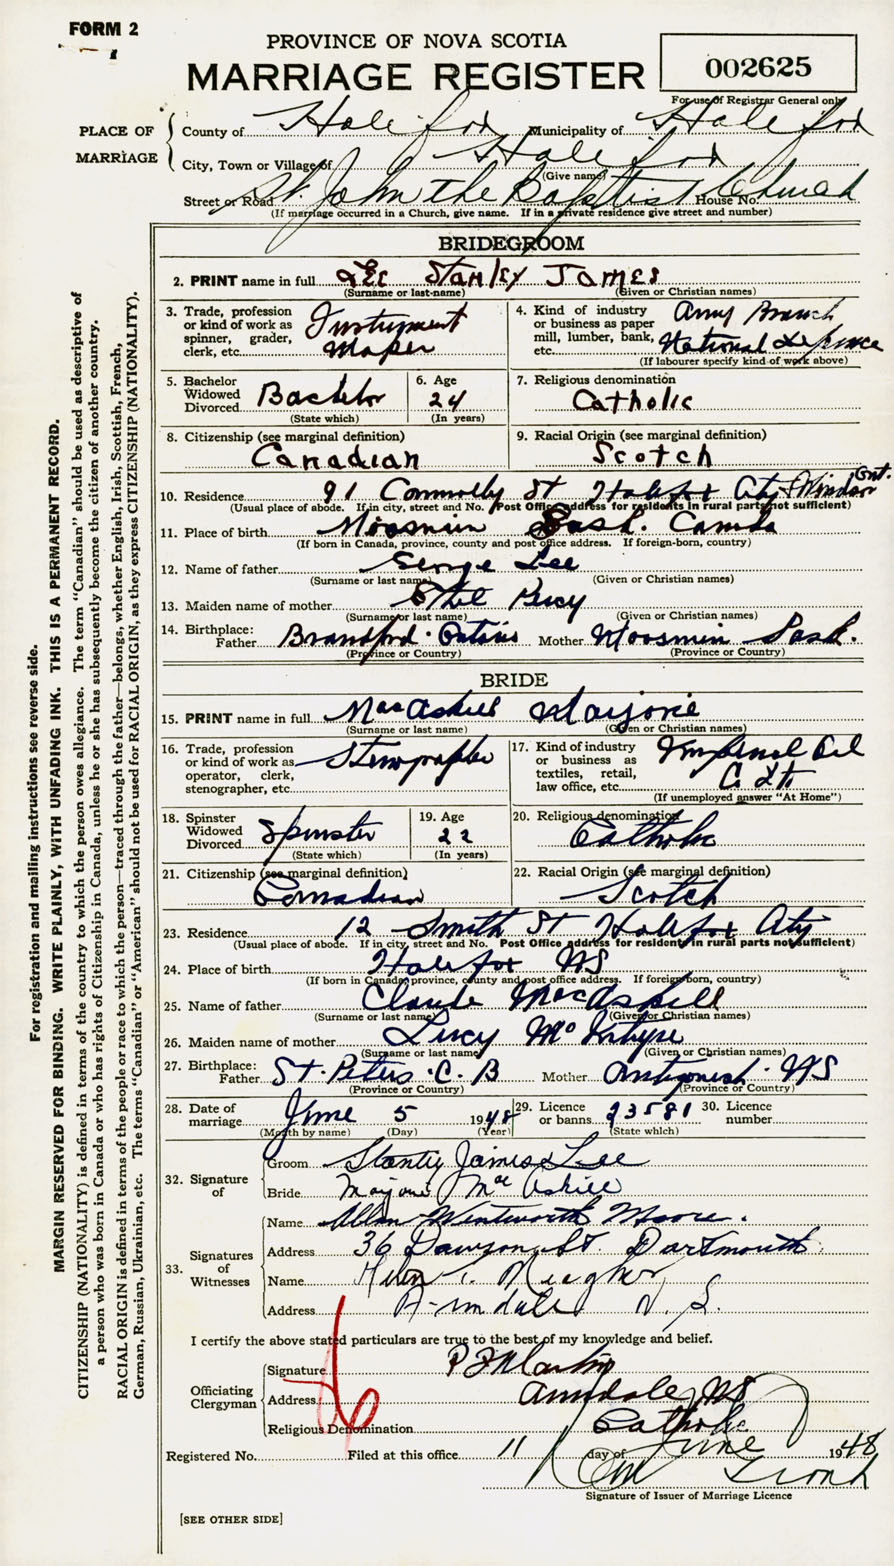 FORM 2
PROVINCE OF NOVA SCOTIA
MARRIAGE REGISTER
002625
For use of Registrar General only
PLACE OF MARRIAGE
County of Halifax Municipality of Halifax
City, Town or Village of Halifax
(Give name)
Street or Road St. John the Baptist Church House No.
(If marriage occurred in a Church, give name. If in a private residence give street and number)
BRIDEGROOM
2. PRINT name in full LEE STANLEY JAMES
(Surname or last-name) (Given or Christian names)
3. Trade, profession or kind of work as spinner, grader, clerk, etc. Instrument Maker
4. Kind of industry or business as paper mill, lumber, bank, etc. Army Branch National Defence
(If labourer specify kind of work above)
5. Bachelor Widowed Divorced Bachelor
(State which)
6. Age 24
(In years)
7. Religious denomination Catholic
8. Citizenship (see marginal definition) Canadian
9. Racial Origin (see marginal definition) Scotch
10. Residence 91 Connolly St Halifax City Windsor Ont.
(Usual place of abode. If in city, street and No. Post Office address for residents in rural parts not sufficient)
11. Place of birth Moosmin Sask. Canada
(If born in Canada, province, county and post office address. If foreign-born, country)
12. Name of father George Lee
(Surname or last name) (Given or Christian names)
13. Maiden name of mother Ethel
(Surname or last name) (Given or Christian names)
14. Birthplace: Father Brandford Ontario Mother Moosmin Sask.
(Province or Country) (Province or Country)
BRIDE
15. PRINT name in full MacAskill Marjorie
(Surname or last name) (Given or Christian names)
16. Trade, profession or kind of work as operator, clerk, stenographer, etc. Stenographer
17. Kind of industry or business as textiles, retail, law office, etc. Imperial Oil Co Ltd
(If unemployed answer "At Home")
18. Spinster Widowed Divorced Spinster
(State which)
19. Age 22
(In years)
20. Religious denomination Catholic
21. Citizenship (see marginal definition) Canadian
22. Racial Origin (see marginal definition) Scotch
23. Residence 12 Smith St Halifax City
(Usual place of abode. If in city, street and No. Post Office address for residents in rural parts not sufficient)
24. Place of birth Halifax NS
(If born in Canada, province, county and post office address. If foreign-born, country)
25. Name of father Claude MacAskill
(Surname or last name) (Given or Christian names)
26. Maiden name of mother Lucy McIntyre
(Surname or last name) (Given or Christian names)
27. Birthplace: Father St. Peters C. B Mother Antigonish NS
(Province or Country) (Province or Country)
28. Date of marriage June 5 1948
(Month by name) (Day) (Year)
29. Licence or banns 23581
(State which)
30. Licence number
32. Signature of
Groom Stanley James Lee
Bride Marjorie MacAskill
33. Signatures of Witnesses
Name Allan Wentworth Moore.
Address 36 Dawson St. Dartmouth
Name Meagher
Address Armdale N. S.
I certify the above stated particulars are true to the best of my knowledge and belief.
Officiating Clergyman
Signature P F Martin
Address Armdale, NS
Religious Denomination Catholic
Registered No. Filed at this office 11 day of June 1948
Signature of Issuer of Marriage Licence
[SEE OTHER SIDE]
For registration and mailing instructions see reverse side.
MARGIN RESERVED FOR BINDING. WRITE PLAINLY, WITH UNFADING INK. THIS IS A PERMANENT RECORD.
CITIZENSHIP (NATIONALITY) is defined in terms of the country to which the person owes allegiance. The term "Canadian" should be used as descriptive of
a person who was born in Canada or who has rights of Citizenship in Canada, unless he or she has subsequently become the citizen of another country.
RACIAL ORIGIN is defined in terms of the people or race to which the person—traced through the father—belongs, whether English, Irish, Scottish, French,
German, Russian, Ukrainian, etc. The terms "Canadian" or "American" should not be used for RACIAL ORIGIN, as they express CITIZENSHIP (NATIONALITY).